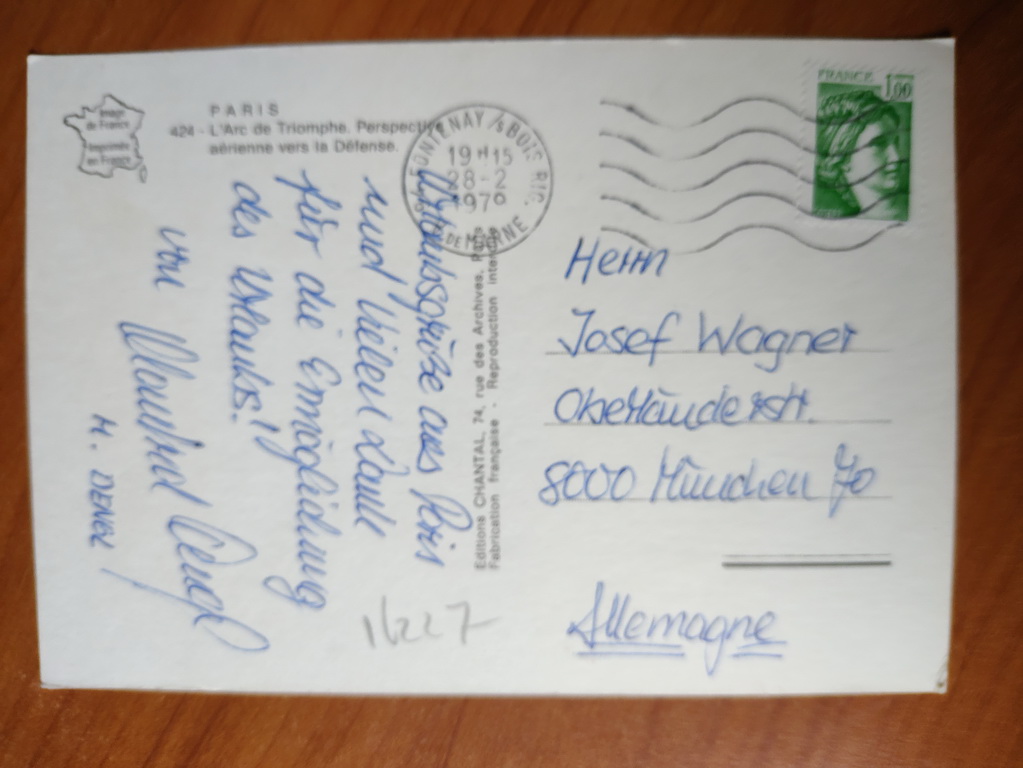 Image
de France
Imprimée
en France
PARIS
424 - L'Arc de Triomphe. Perspective
aérienne vers la Défense.
Urlaubsgrüße aus Paris
und Vielen Dank
für die Ermöglichung
des Urlaubs!
von Manfred
M. DENGL
Editions CHANTAL, 74, rue des Archives, Paris
Fabrication française - Reproduction interdite
FONTENAY /s BOIS
19H15
28-2
1979
DE MARNE
FRANCE 1,00
Herrn
Josef Wagner
Oberländerstr.
8000 München 70
Allemagne